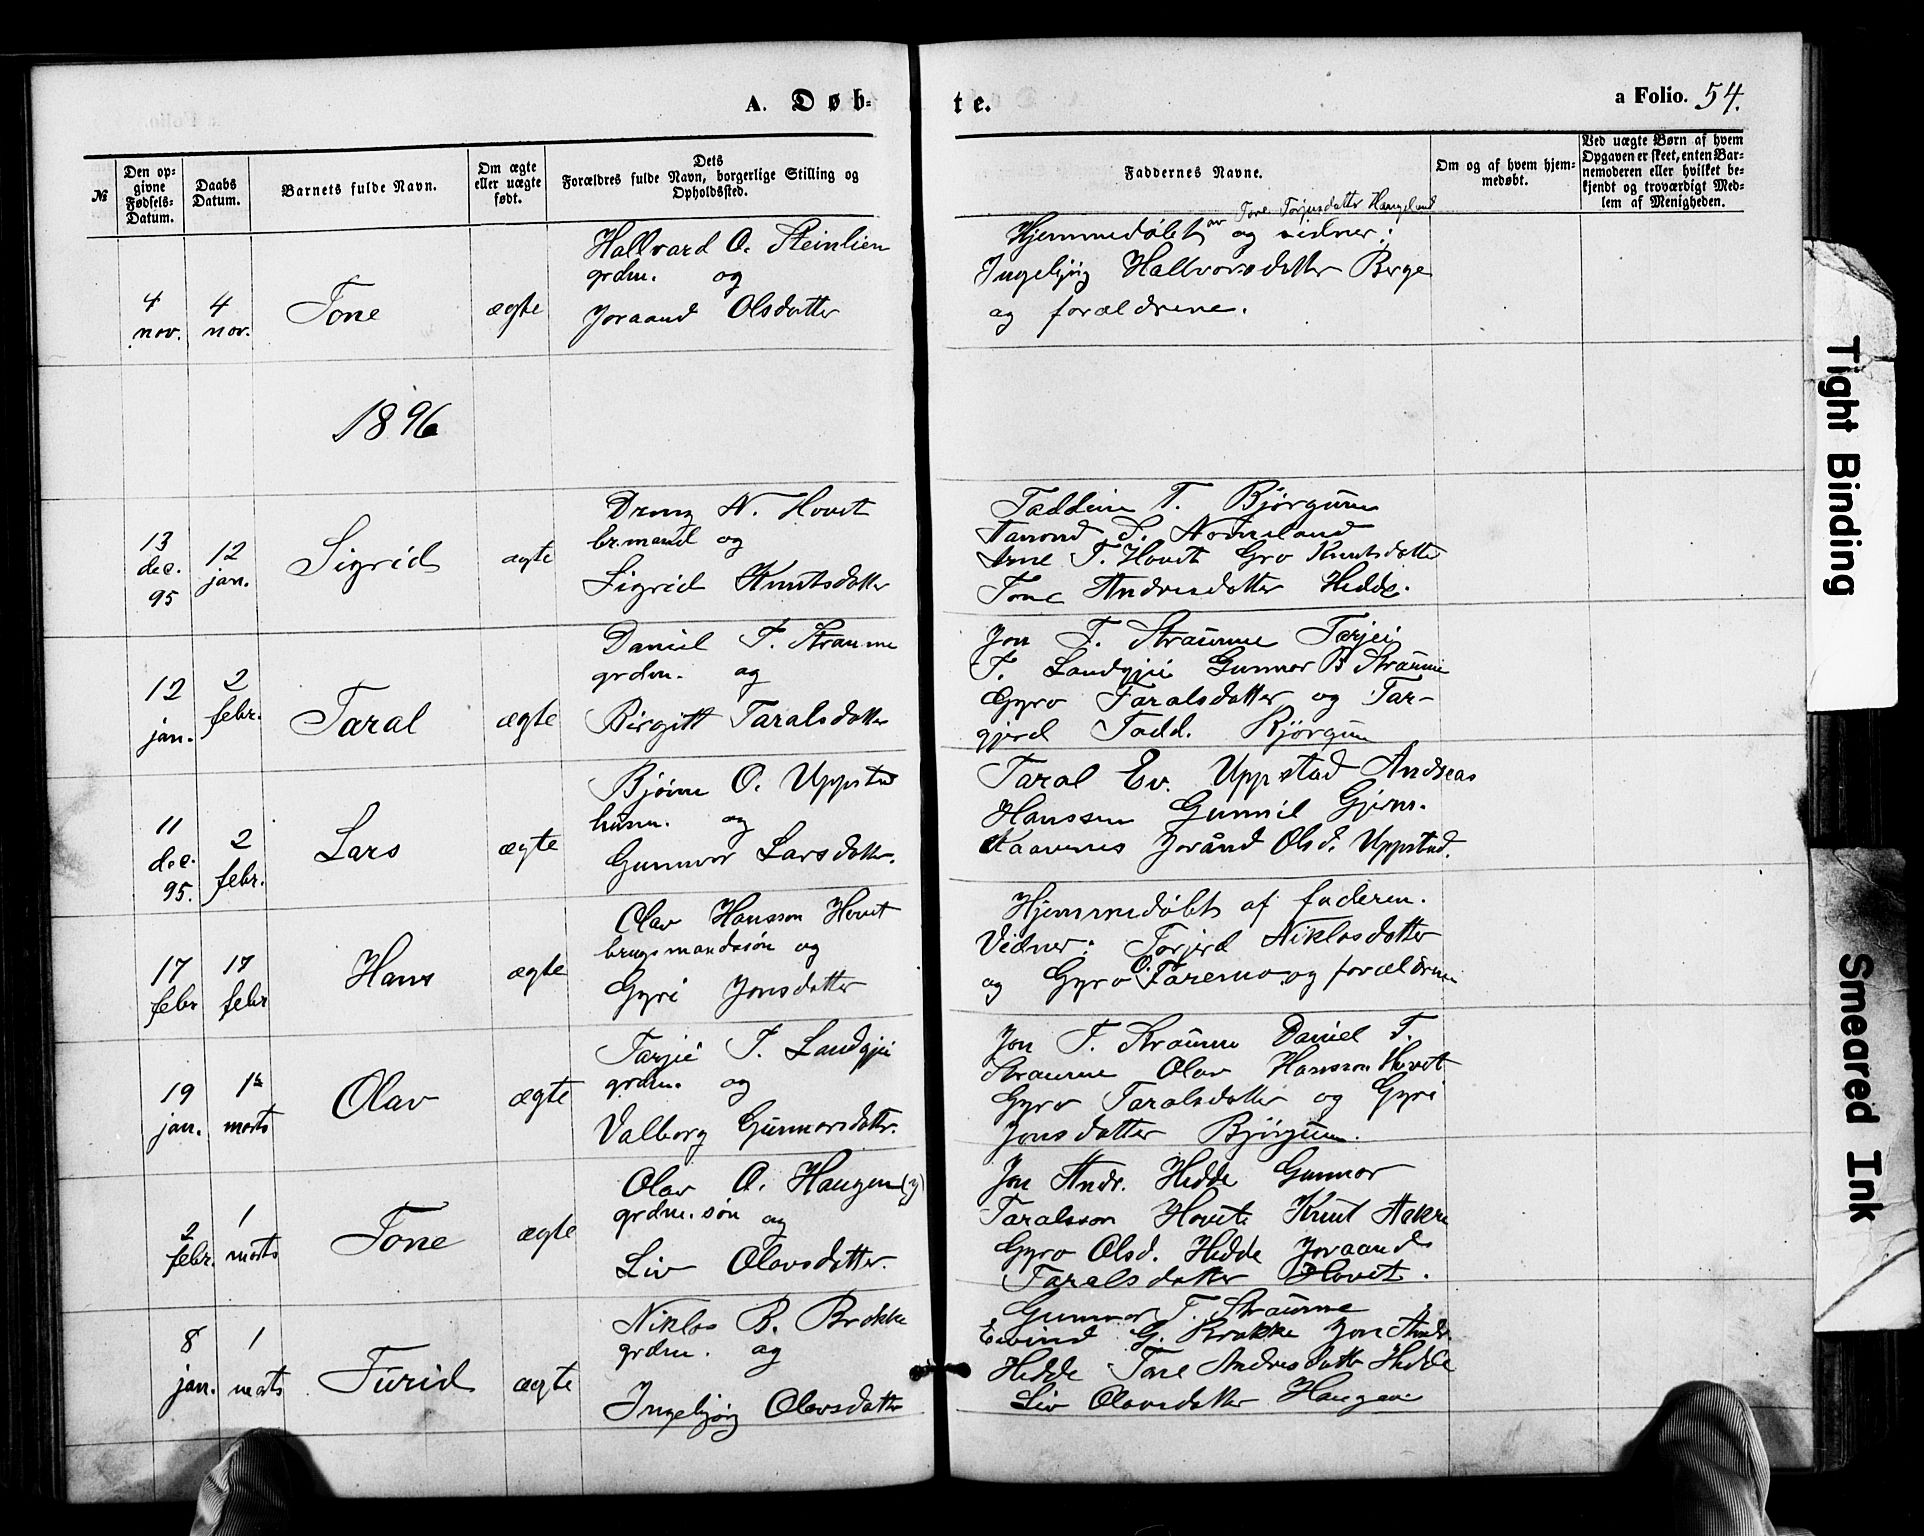 A. Døb-
te.
a Folio. 54.
№
Den op-
givne
Fødsels-
Datum.
Daabs
Datum.
Barnets fulde Navn.
Om ægte
eller uægte
født.
Dets
Forældres fulde Navn, borgerlige Stilling og
Opholdssted.
Faddernes Navne.
Om og af hvem hjem-
medøbt.
Ved uægte Børn af hvem
Opgaven er skeet, enten Bar-
nemoderen eller hvilket be-
kjendt og troværdigt Med-
lem af Menigheden.
4
nov.
4
nov.
Tone
ægte
Hallvard O. Steinlien
grdm. og
Joraand Olsdatter
av Tone Torjusdatter Haugeland
Hjemmedøbt og vidner:
Ingebjørg Hallvorsdatter Berge
og forældrene.
1896
13
dec.
95
12
jan.
Sigrid
ægte
Dreng N. Hovet
br.mand og
Sigrid Knutsdatter
Taddeiv T. Bjørgum
Aanond S. Nomeland
Arne T. Hovet Gro Knutsdatter
Tone Andresdatter Hedde.
12
jan.
2
febr.
Taral
ægte
Daniel T. Straume
grdm. og
Birgitt Taralsdatter
Jon T. Straume Tarjei
T. Landgjei Gunnar B Straume
Gyro Taralsdatter og Tar-
gjerd Tadd. Bjørgum
11
dec.
95.
2
febr.
Lars
ægte
Bjørn O. Uppstad
husm. og
Gunnvor Larsdatter.
Taral Ev. Uppstad Andreas
Hanssen Gunnil Gjerm.
Kaavenes Joränd Olsd. Uppstad.
17
febr
17
febr
Hans
ægte
Olav Hansson Hovet
brugsmandssøn og
Gyri Jonsdatter
Hjemmedøbt af faderen.
Vidner: Torjerd Niklosdatter
og Gyro O. Faremo og forældrene
19
jan.
1ste
marts
Olav
ægte
Tarjei T. Landgjei
grdm. og
Valborg Gunnarsdattr.
Jon T. Straume Daniel T.
Straume Olav Hansson Hovet
Gyro Taralsdatter og Gyri
Jonsdatter Bjørgum.
2
febr.
1
marts
Tone
ægte
Olav O. Haugen (y)
grdm.søn og
Liv Olavsdatter.
Jon Andr. Hedde Gunnar
Taralsson Hovet Knut Aakre
Gyro Olsd. Hedde Joraand
Taralsdatter Hovet.
8
jan.
1
marts
Turid
ægte
Niklos B. Brokke
grdm. og
Ingebjørg Olavsdatter
Gunnar T. Straume
Eivind G. Brokke Jon Andr.
Hedde Tone Andresdatter Hedde
Liv Olavsdatter Haugen
Tight Binding
Smeared Ink